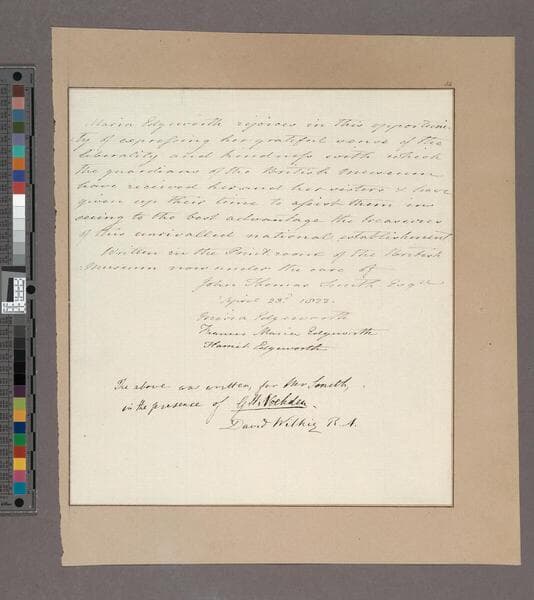 Maria Edgeworth rejoices in this opportuni-
ty of expressing her grateful sense of the
liberality and kindness with which
the guardians of the British Museum
have received her and her sisters & have
given up their time to assist them in
seeing to the best advantage the treasures
of this unrivalled national establishment
Written in the Print room of the British
Museum now under the care of
John Thomas Smith Esqre
April 23d 1822.
Maria Edgeworth
Frances Maria Edgeworth
Harriet Edgeworth
The above was written, for Mr Smith,
in the presence of G H Noehden.
David Wilkie R.A.